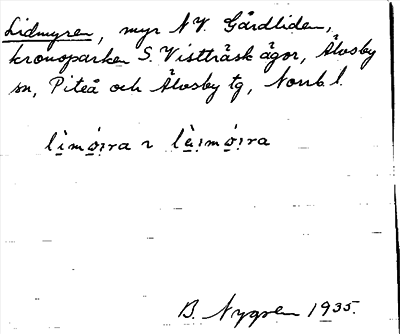 Lidmyren, myr NV. Gårdliden,
kronoparken S. Vistträsk ägor, Älvsby
sn, Piteå och Älvsby tg, Norrb l.
B. Nygren 1935.